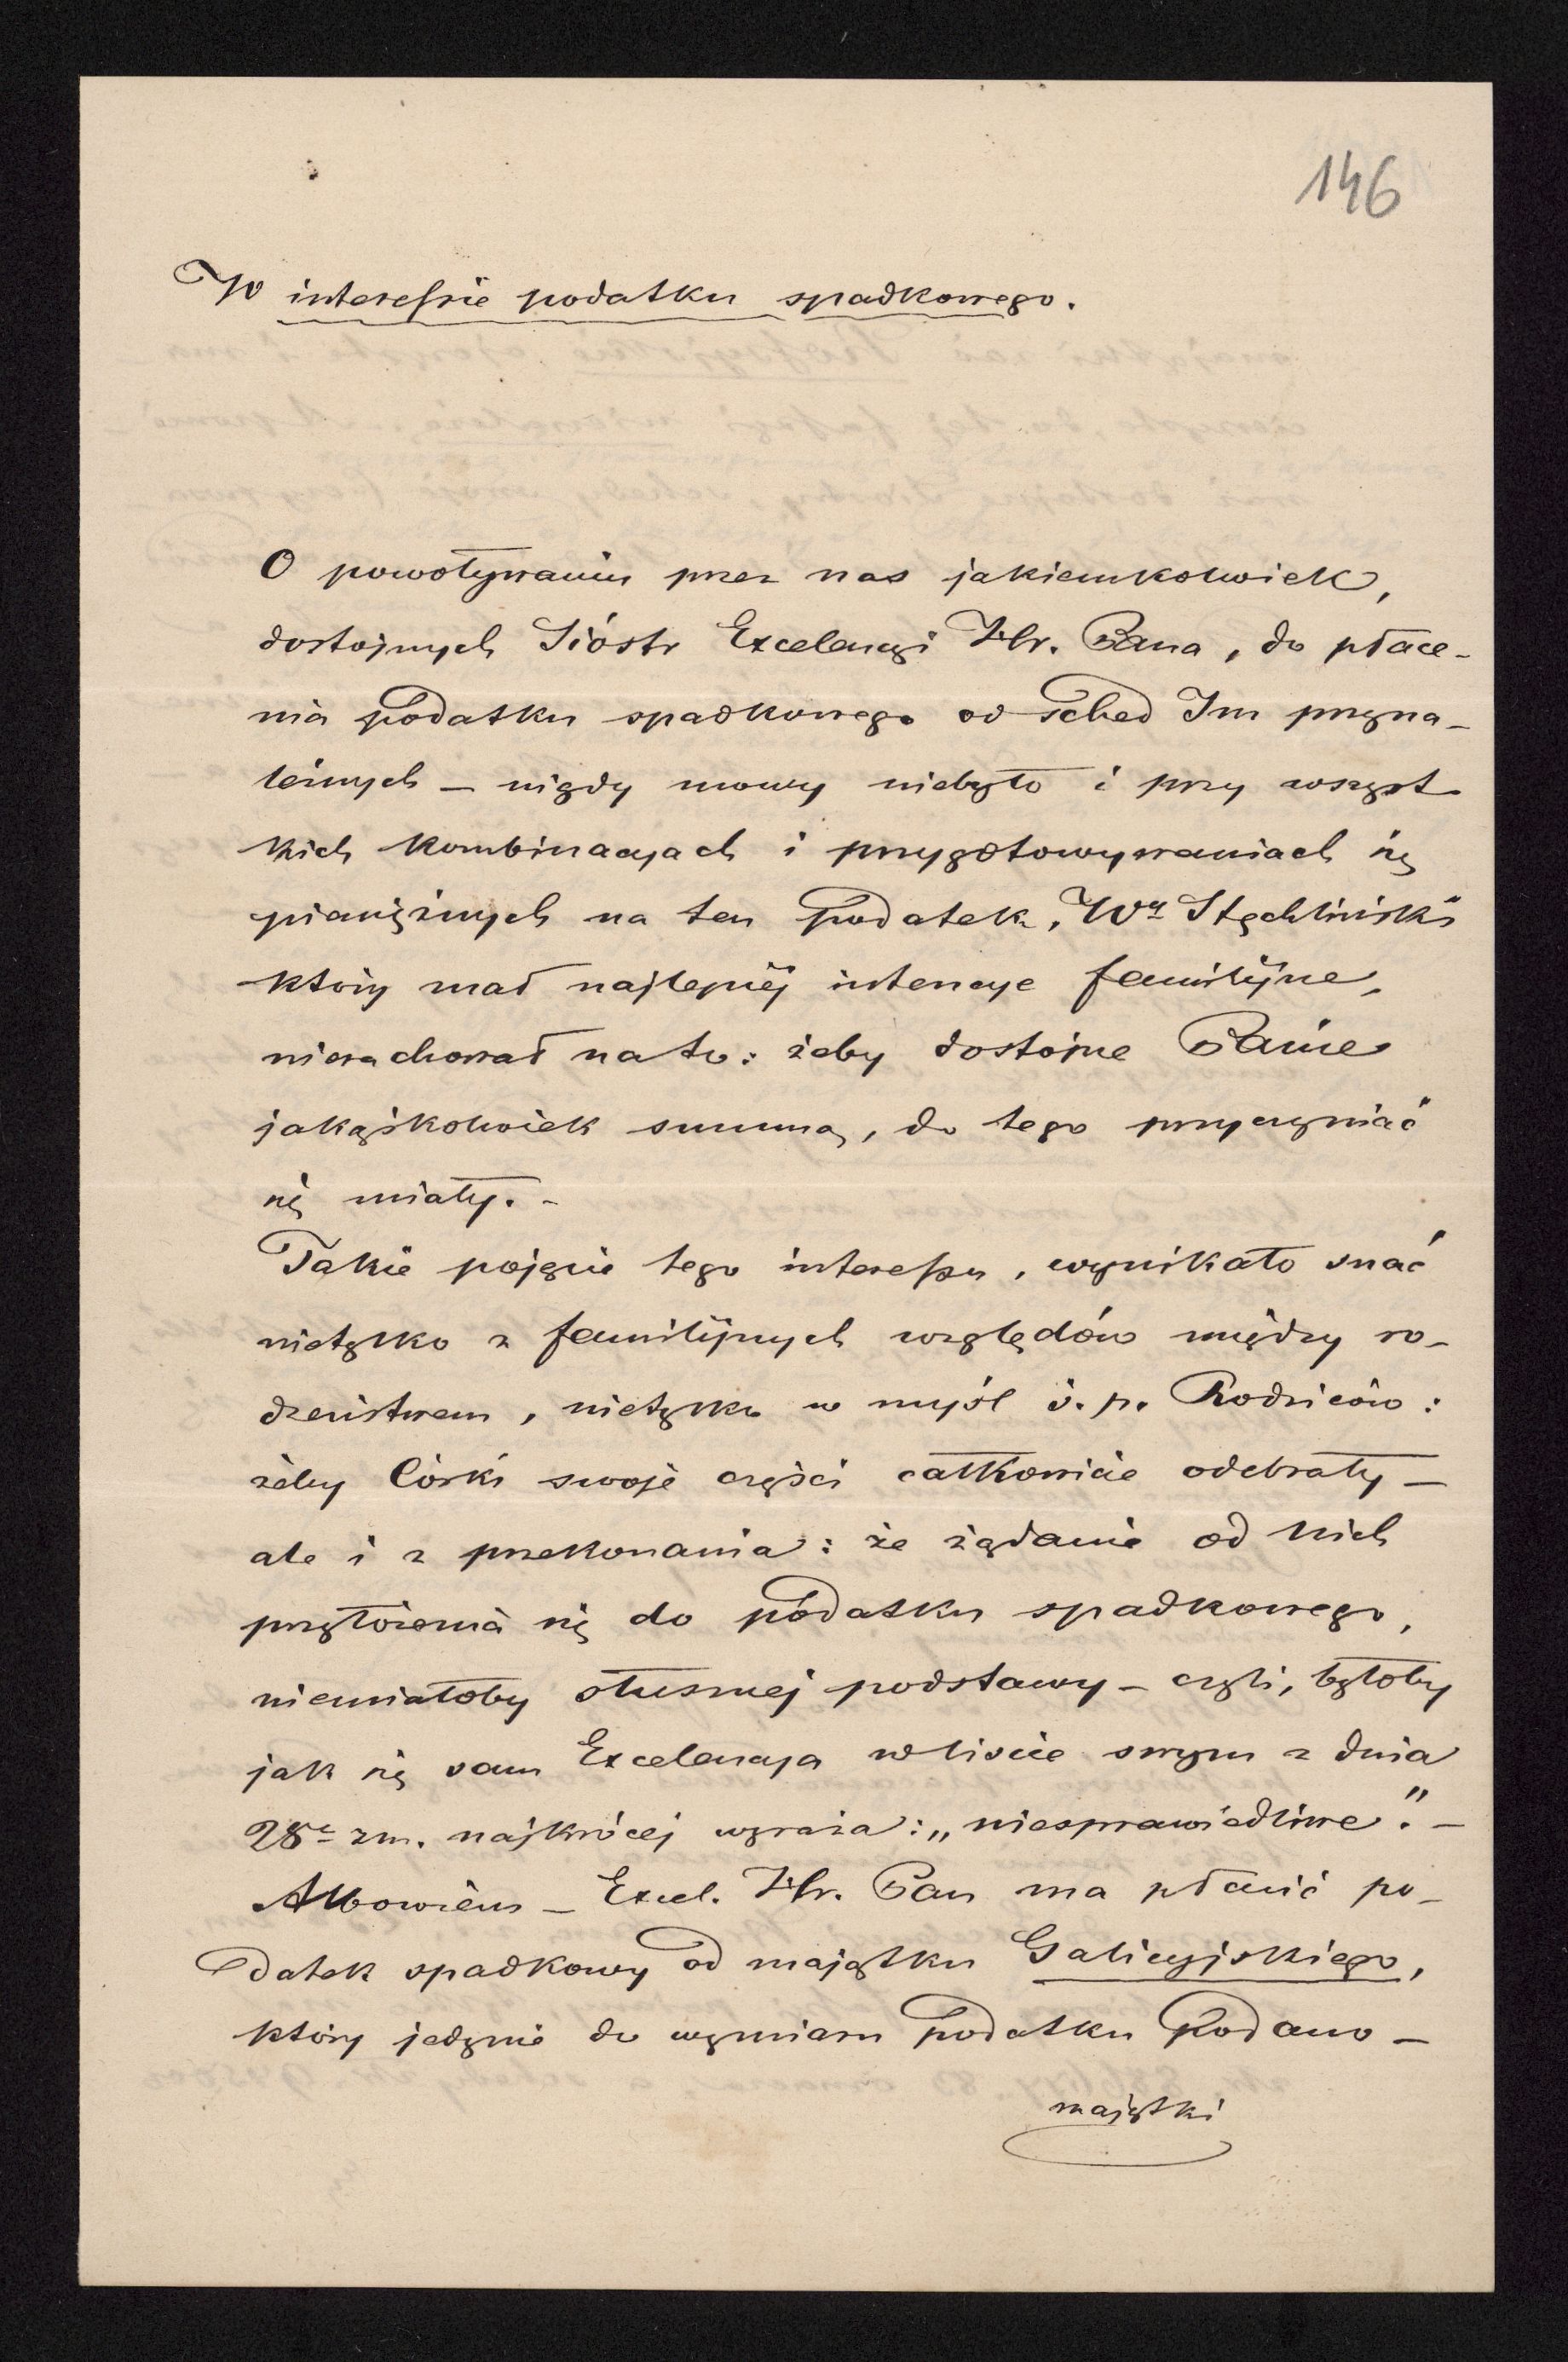 146
W interessie podatku spadkowego.
O powoływaniu przez nas jakiemkolwiek,
dostojnych Sióstr Excelencyi Hr. Pana, do płace-
nia podatku spadkowego od sched Im przyna-
leżnych – nigdy mowy niebyło i przy wszyst
kich kombinacyach i przygotowywaniach się
pieniężnych na ten podatek, Wy Stęchliński
który znał najlepiéj intencye familijne,
nierachował na to: żeby dostojne Panie
jakąśkolwiek summą, do tego przyczyniać
się miały. -
Takie pojęcie tego interessu, wynikało snać
nietylko z familijnych względów między ro-
dzeństwem, nietylko w myśl ś. p. Rodziców:
żeby Córki swoje części całkowicie odebrały –
ale i z przekonania: że żądanie od nich
przyłożenia się do podatku spadkowego,
niemiałoby słusznej podstawy – czyli, byłoby
jak się sam Excelencya w liście swym z dnia
28e zm. najkrócej wyraża: „niesprawiedliwe". –
Albowiem – Excel. Hr. Pan ma płacić po-
datek spadkowy od majątku Galicyjskiego,
który jedynie do wymiaru podatku podano –
majątki